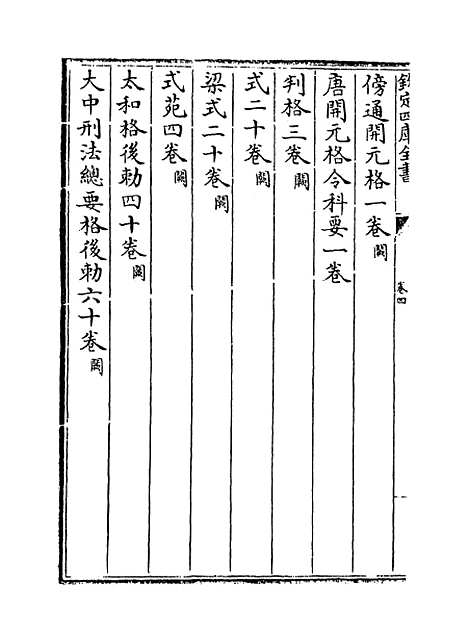 欽定四庫全書
卷四
傍通開元格一卷闕
唐開元格令科要一卷
判格三卷闕
式二十卷闕
梁式二十卷闕
式苑四卷闕
太和格後勅四十卷闕
大中刑法總要格後勅六十卷闕